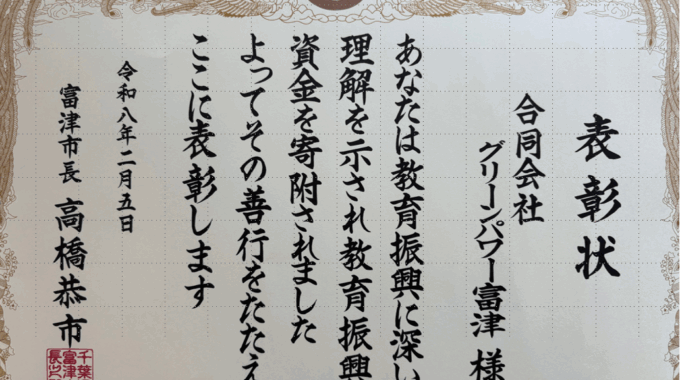 表彰状
合同会社
グリーンパワー富津 様
あなたは教育振興に深い
理解を示され教育振興
資金を寄附されました
よってその善行をたたえ
ここに表彰します
令和八年二月五日
富津市長 高橋恭市
千葉
富津市
長之